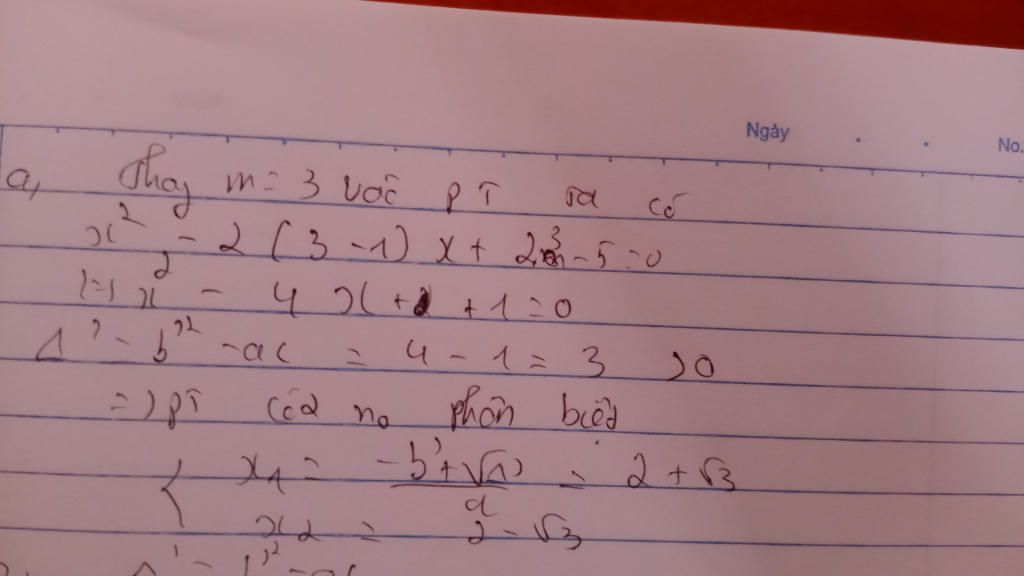 Ngày
No.
a, Thay m = 3 vào pt ta có
x² - 2(3-1)x + 2.3 - 5 = 0
(=) x² - 4x + 1 = 0
Δ' = b'² - ac = 4 - 1 = 3 > 0
=) pt có 2 no phân biệt
x1 = (-b' + √Δ')/a = 2 + √3
x2 = 2 - √3
Δ' = b'² - ac